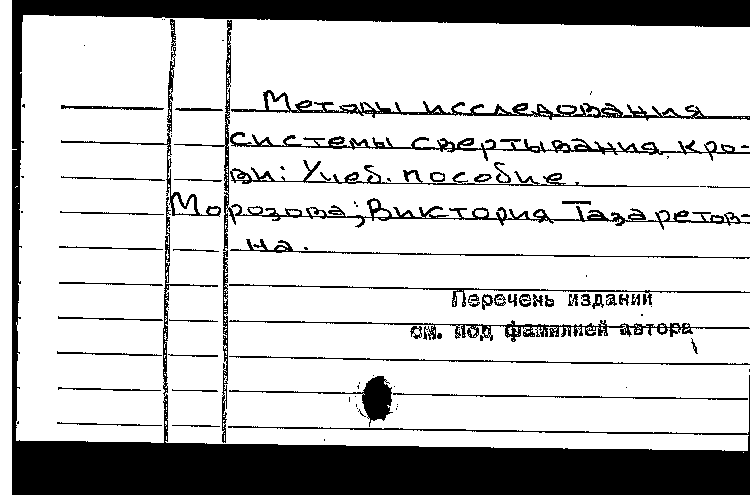 Методы исследования
системы свертывания кро-
ви: Учеб. пособие.
Морозова; Виктория Тазаретов-
на.
Перечень изданий
см. под фамилией автора